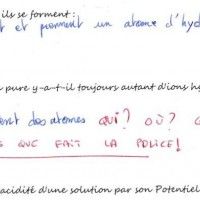 ils se forment :
et prennent un atome d'hyd
pure y-a-t-il toujours autant d'ions h
des atomes qui? où?
QUE FAIT LA POLICE!
acidité d'une solution par son Potentiel